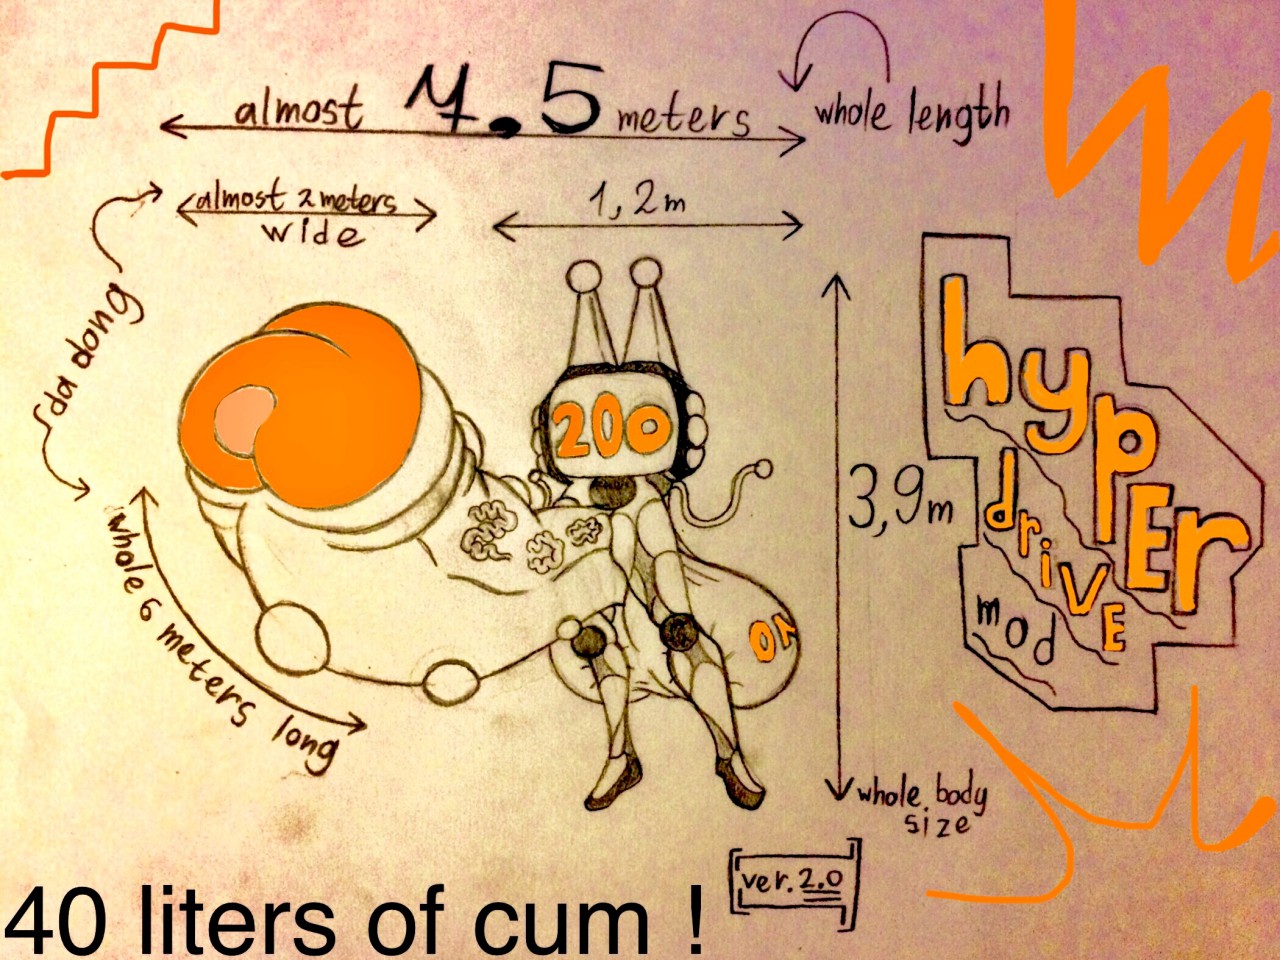 almost 4.5 meters
whole length
almost 2 meters
wide
1,2m
da dong
200
3,9m
hypEr
driVE
mod
whole 6 meters long
whole body
size
ver. 2.0
40 liters of cum !